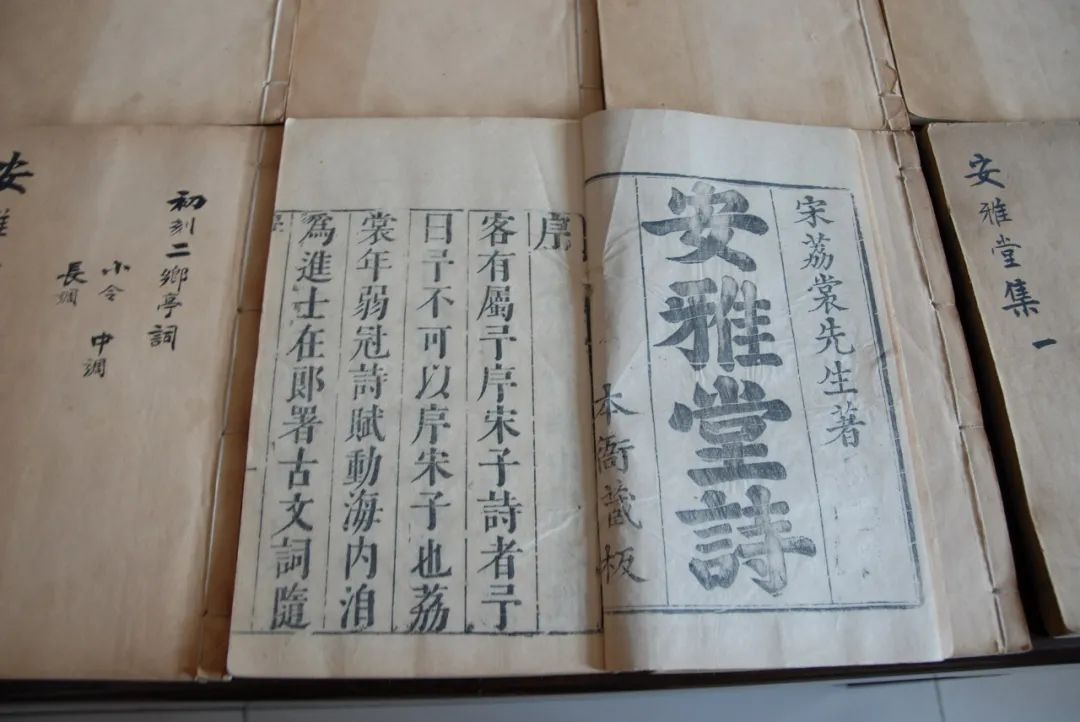 安雅堂集一
宋荔裳先生著
安雅堂詩
本衙藏板
序
客有屬予序宋子詩者予
曰予不可以序宋子也荔
裳年弱冠詩賦動海内洎
為進士在郎署古文詞隨
初刻二鄉亭詞
小令
中調
長調
安雅